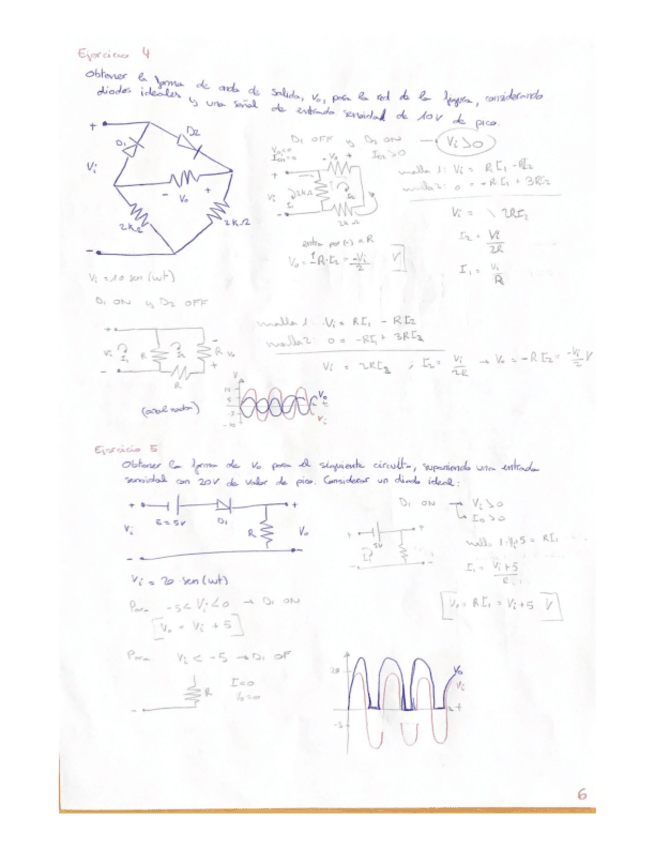 Ejercicio 4
Obtener la forma de onda de salida, Vo, para la red de la figura, considerando
diodos ideales y una señal de entrada senoidal de 10V de pico.
+
D1
D2
Vi
- Vo +
2kΩ
2kΩ
-
D1 OFF y D2 ON → Vi>0
malla 1: Vi = RI1 - RI2
malla 2: 0 = -RI1 + 3RI2
Vi = 2RI2
I2 = Vi/2R
I1 = Vi/R
entra por (-) a R
Vi = 10 sen(wt)
D1 ON y D2 OFF
malla 1: Vi = RI1 - RI2
malla 2: 0 = -RI1 + 3RI2
Vi = 2RI2 , I2 = Vi/2R → Vo = -RI2 = -Vi/2 V
Vo
Vi
Ejercicio 5
Obtener la forma de Vo para el siguiente circuito, suponiendo una entrada
senoidal con 20V de valor de pico. Considerar un diodo ideal:
+
E = 5V
D1
+
Vi
R
Vo
-
-
D1 ON → Vi>0
ID>0
5V
I1 = Vi+5/R
[Vo = RI1 = Vi+5 V]
Vi = 20 sen(wt)
Para -5<Vi<0 → D1 ON
[Vo = Vi + 5]
Para Vi < -5 → D1 OF
R
I=0
Vo=0
20
-5
Vo
Vi
t
6